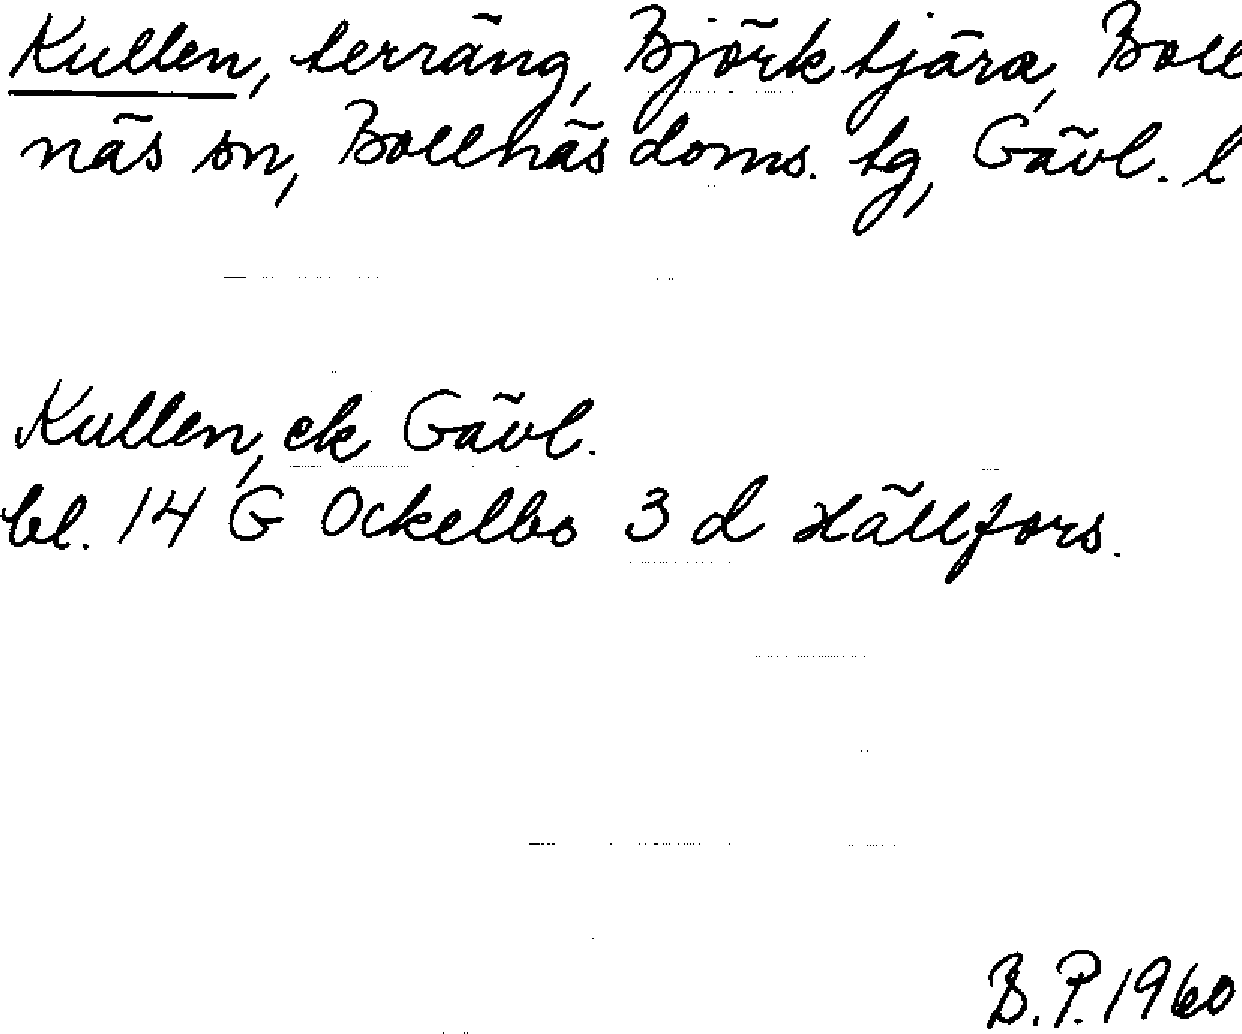 Kullen, terräng, Björktjära, Boll
näs sn, Bollnäs doms. tg, Gävl. l
Kullen, ek Gävl.
bl. 14 G Ockelbo 3 d Hällfors.
B. P. 1960